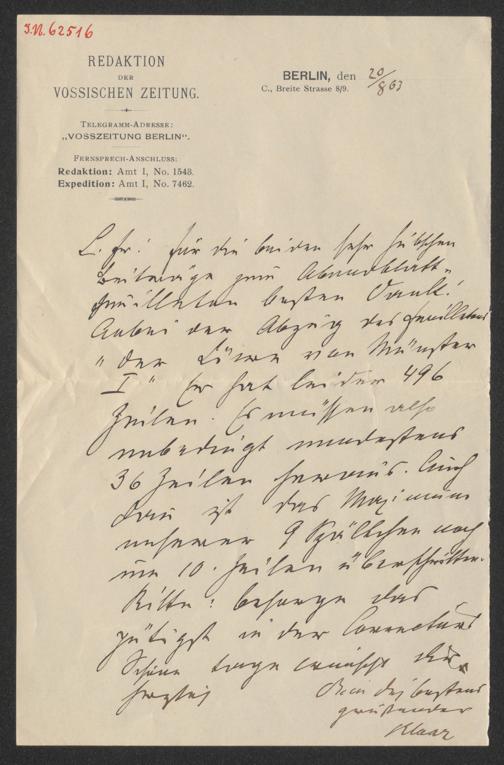 J.N. 62516
REDAKTION
DER
VOSSISCHEN ZEITUNG.
TELEGRAMM-ADRESSE:
„VOSSZEITUNG BERLIN“.
FERNSPRECH-ANSCHLUSS:
Redaktion: Amt I, No. 1543.
Expedition: Amt I, No. 7462.
BERLIN, den 20/8 03
C., Breite Strasse 8/9.
L. Fr! Für die beiden sehr hübschen
Beiträge zum Abendblatt-
Feuilleton besten Dank!
Anbei der Abzug des Feuilletons
"Der Löwe von Münster
I" Er hat leider 496
Zeilen. Es müssen also
unbedingt mindestens
36 Zeilen heraus. Auch
dann ist das Maximum
unserer 9 Spältchen noch
um 10 Zeilen überschritten.
Bitte: besorge das
gütigst in der Correctur
Schöne Tage wünscht Dir
herzlich
Dein Dich bestens
grüßender
Klaar